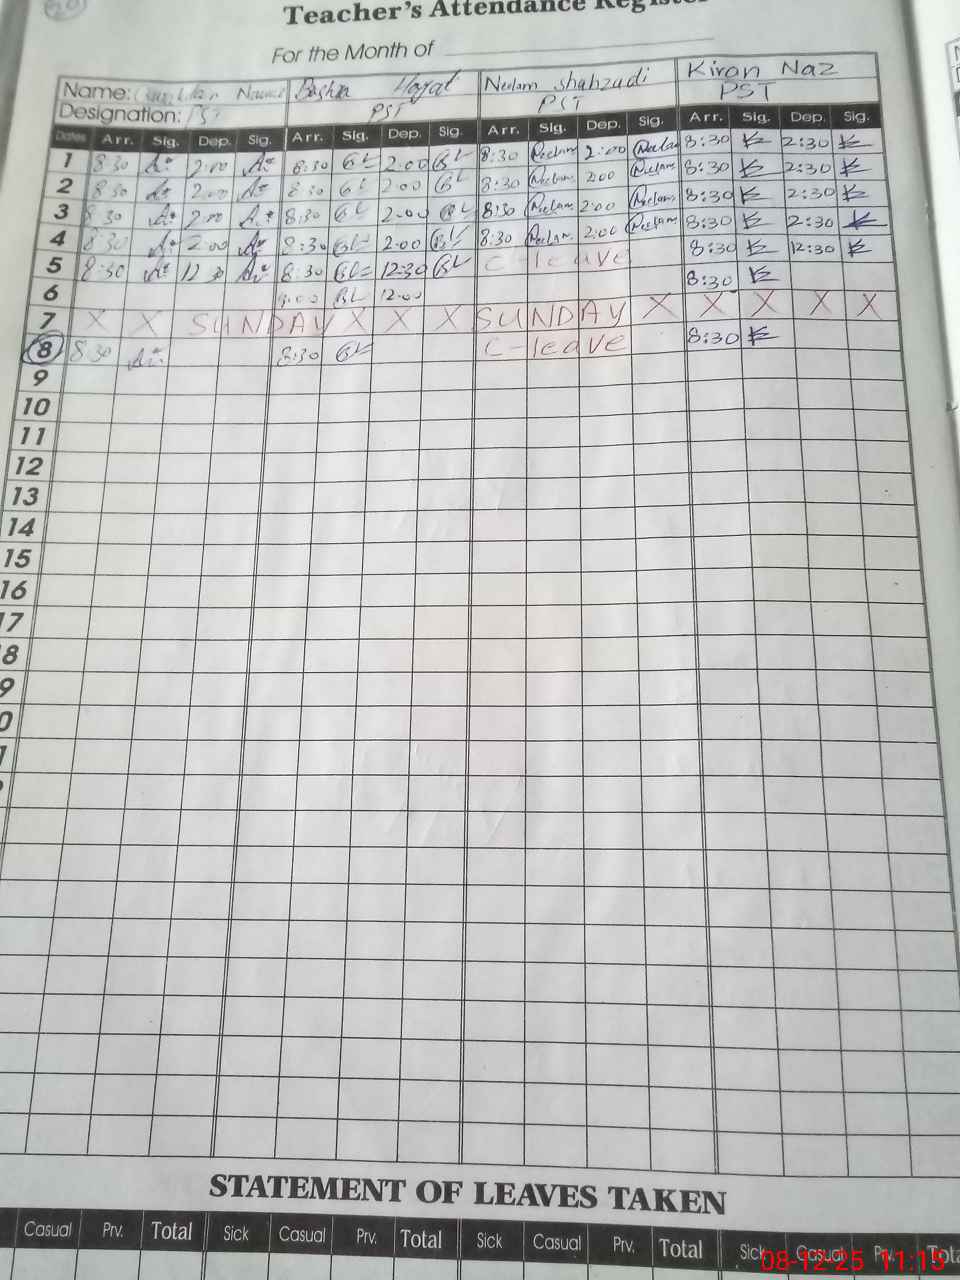 Teacher's Attendance Register
For the Month of
Name: Nawaz Bushra Hayat Neelam Shahzadi Kiran Naz
Designation: PST PST PST PST
Dates Arr. Sig. Dep. Sig. Arr. Sig. Dep. Sig. Arr. Sig. Dep. Sig. Arr. Sig. Dep. Sig.
1 8:30 2:00 8:30 2:00 8:30 Neelam 2:00 Neelam 8:30 2:30
2 8:30 2:00 8:30 2:00 8:30 Neelam 2:00 Neelam 8:30 2:30
3 8:30 2:00 8:30 2:00 8:30 Neelam 2:00 Neelam 8:30 2:30
4 8:30 2:00 8:30 2:00 8:30 Neelam 2:00 Neelam 8:30 2:30
5 8:30 12:30 8:30 12:30 C-leave 8:30 12:30
6 12:00 8:30
7 X X SUNDAY X X X SUNDAY X X X X X
8 8:30 8:30 C-leave 8:30
9
10
11
12
13
14
15
16
17
8
9
0
1
STATEMENT OF LEAVES TAKEN
Casual Prv. Total Sick Casual Prv. Total Sick Casual Prv. Total Sick Casual Prv. Tota
08-12-25 11:15